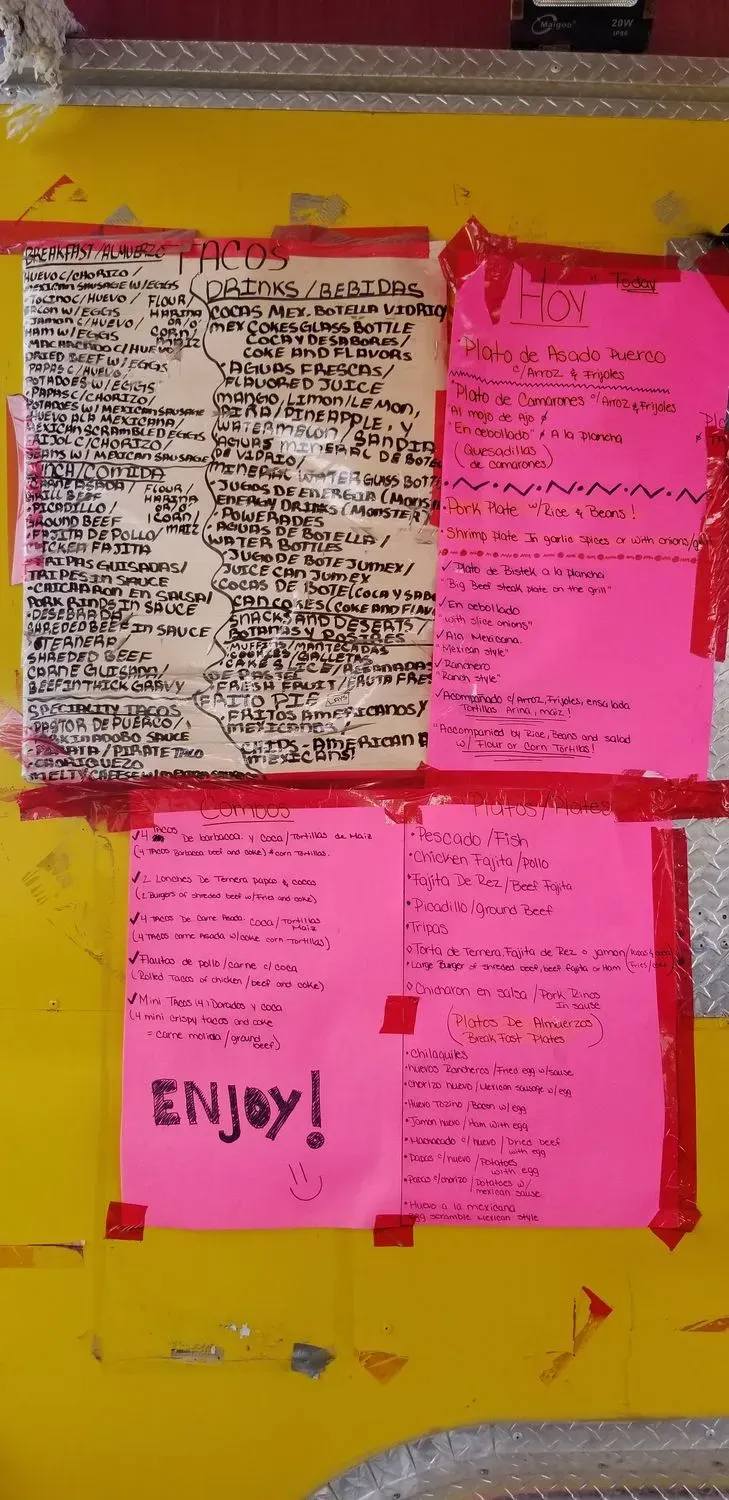 Maigoo
20W
IP66
BREAKFAST/ALMUERZO
TACOS
HUEVO C/CHORIZO/
MEXICAN SAUSAGE W/EGGS
TOCINO C/HUEVO/
BACON W/EGGS
JAMON C/HUEVO/
HAM W/EGGS
FLOUR/
HARINA
OR/O
CORN/
MAIZ
MACHACADO C/HUEVO
DRIED BEEF W/EGGS
PAPAS C/HUEVO/
POTADOES W/EGGS
PAPAS C/CHORIZO/
POTATOES W/MEXICAN SAUSAGE
HUEVO ALA MEXICANA/
MEXICAN SCRAMBLED EGGS
FRIJOL C/CHORIZO/
BEANS W/MEXICAN SAUSAGE
/COMIDA
CARNE ASADA/
GRILL BEEF
FLOUR/
HARINA
OR/O
CORN/
MAIZ
•PICADILLO/
GROUND BEEF
•FAJITA DE POLLO/
CHICKEN FAJITA
TRIPAS GUISADAS/
TRIPES IN SAUCE
•CHICHARON EN SALSA/
PORK RINDS IN SAUCE
•DESEBRADA/
SHREDED BEEF IN SAUCE
•TERNERA/
SHREDED BEEF
CARNE GUISADA/
BEEF IN THICK GRAVY
SPECIALITY TACOS
•PASTOR DE PUERCO/
IN ADOBO SAUCE
•PIRATA/PIRATE TACO
•CHORIQUEZO
MELTY CHEESE W/MEXICAN SAUSAGE
DRINKS/BEBIDAS
COCAS MEX. BOTELLA VIDRIO/
MEX COKES GLASS BOTTLE
COCA Y DESABORES/
COKE AND FLAVORS
•AGUAS FRESCAS/
FLAVORED JUICE
MANGO, LIMON/LEMON,
PIÑA/PINEAPPLE, Y
WATERMELON/SANDIA
AGUAS MINERAL DE BOTE
DE VIDRIO/
MINERAL WATER GLASS BOTT
•JUGOS DE ENERGIA (MONS
ENERGY DRINKS (MONSTER)
•POWERADES
•AGUAS DE BOTELLA/
WATER BOTTLES
•JUGO DE BOTE JUMEX/
JUICE CAN JUMEX
COCAS DE BOTE (COCA Y SAB
CAN COKES (COKE AND FLAV
SNACKS AND DESERTS/
BOTANAS Y POSTRES
•MUFFINS/MANTECADAS
•COOKIES/GALLETAS
•CAKE SLICE/REBANADAS
DE PASTEL
•FRESH FRUIT/FRUTA FRES
FRITO PIE
•FRITOS AMERICANOS Y
MEXICANOS/
CHIPS-AMERICAN
MEXICANS!
Hoy
Today
•Plato de Asado Puerco
c/Arroz & Frijoles
•Plato de Camarones c/Arroz & Frijoles
"Al mojo de Ajo
"En cebollado" A la plancha
(Quesadillas
de camarones)
•Pork Plate w/Rice & Beans!
•Shrimp plate In garlic spices or with onions/
✓ Plato de Bistek a la plancha
"Big Beef steak plate on the grill"
✓En cebollado
"with slice onions"
✓Ala Mexicana.
"Mexican style"
✓Ranchero
"Ranch style"
✓Acompañado c/Arroz, Frijoles, ensalada
Tortillas Arina, maiz!
"Accompanied by Rice, Beans and salad
w/ Flour or Corn Tortillas!
Combos
✓4 TACOS De barbacoa. y coca/Tortillas de Maiz
(4 TACOS Barbacoa beef and coke) corn tortillas.
✓2 Lonches De Ternera papas & cocas
(2 Burgers of shreded beef w/Fries and coke)
✓4 TACOS De Carne Asada. coca/Tortillas Maiz
(4 TACOS carne Asada w/coke corn Tortillas)
✓Flautas de pollo/carne c/coca
(Rolled Tacos of chicken/beef and coke)
✓Mini Tacos (4) Dorados y coca
(4 mini crispy tacos and coke
= carne molida/ground beef)
ENJOY!
Platos/Plates
•Pescado/Fish
•Chicken Fajita/pollo
•Fajita De Rez/Beef Fajita
•Picadillo/ground Beef
•Tripas
◊Torta de Ternera, Fajita de Rez o jamon/
•Large Burger of shreded beef, beef fajita or Ham (Fries/coke)
◊Chicharon en salsa/Pork Rinds
In sause
(Platos De Almuerzos
Breakfast Plates)
•chilaquiles
•huevos Rancheros/Fried egg w/sause
•chorizo huevo/Mexican sausage w/egg
•Huevo Tozino/Bacon w/egg
•Jamon huevo/Ham with egg
•Machacado c/huevo/Dried beef
with egg
•papas c/huevo/potatoes
with egg
•Papas c/chorizo/potatoes w/
mexican sause
•Huevo a la mexicana
egg scramble Mexican style